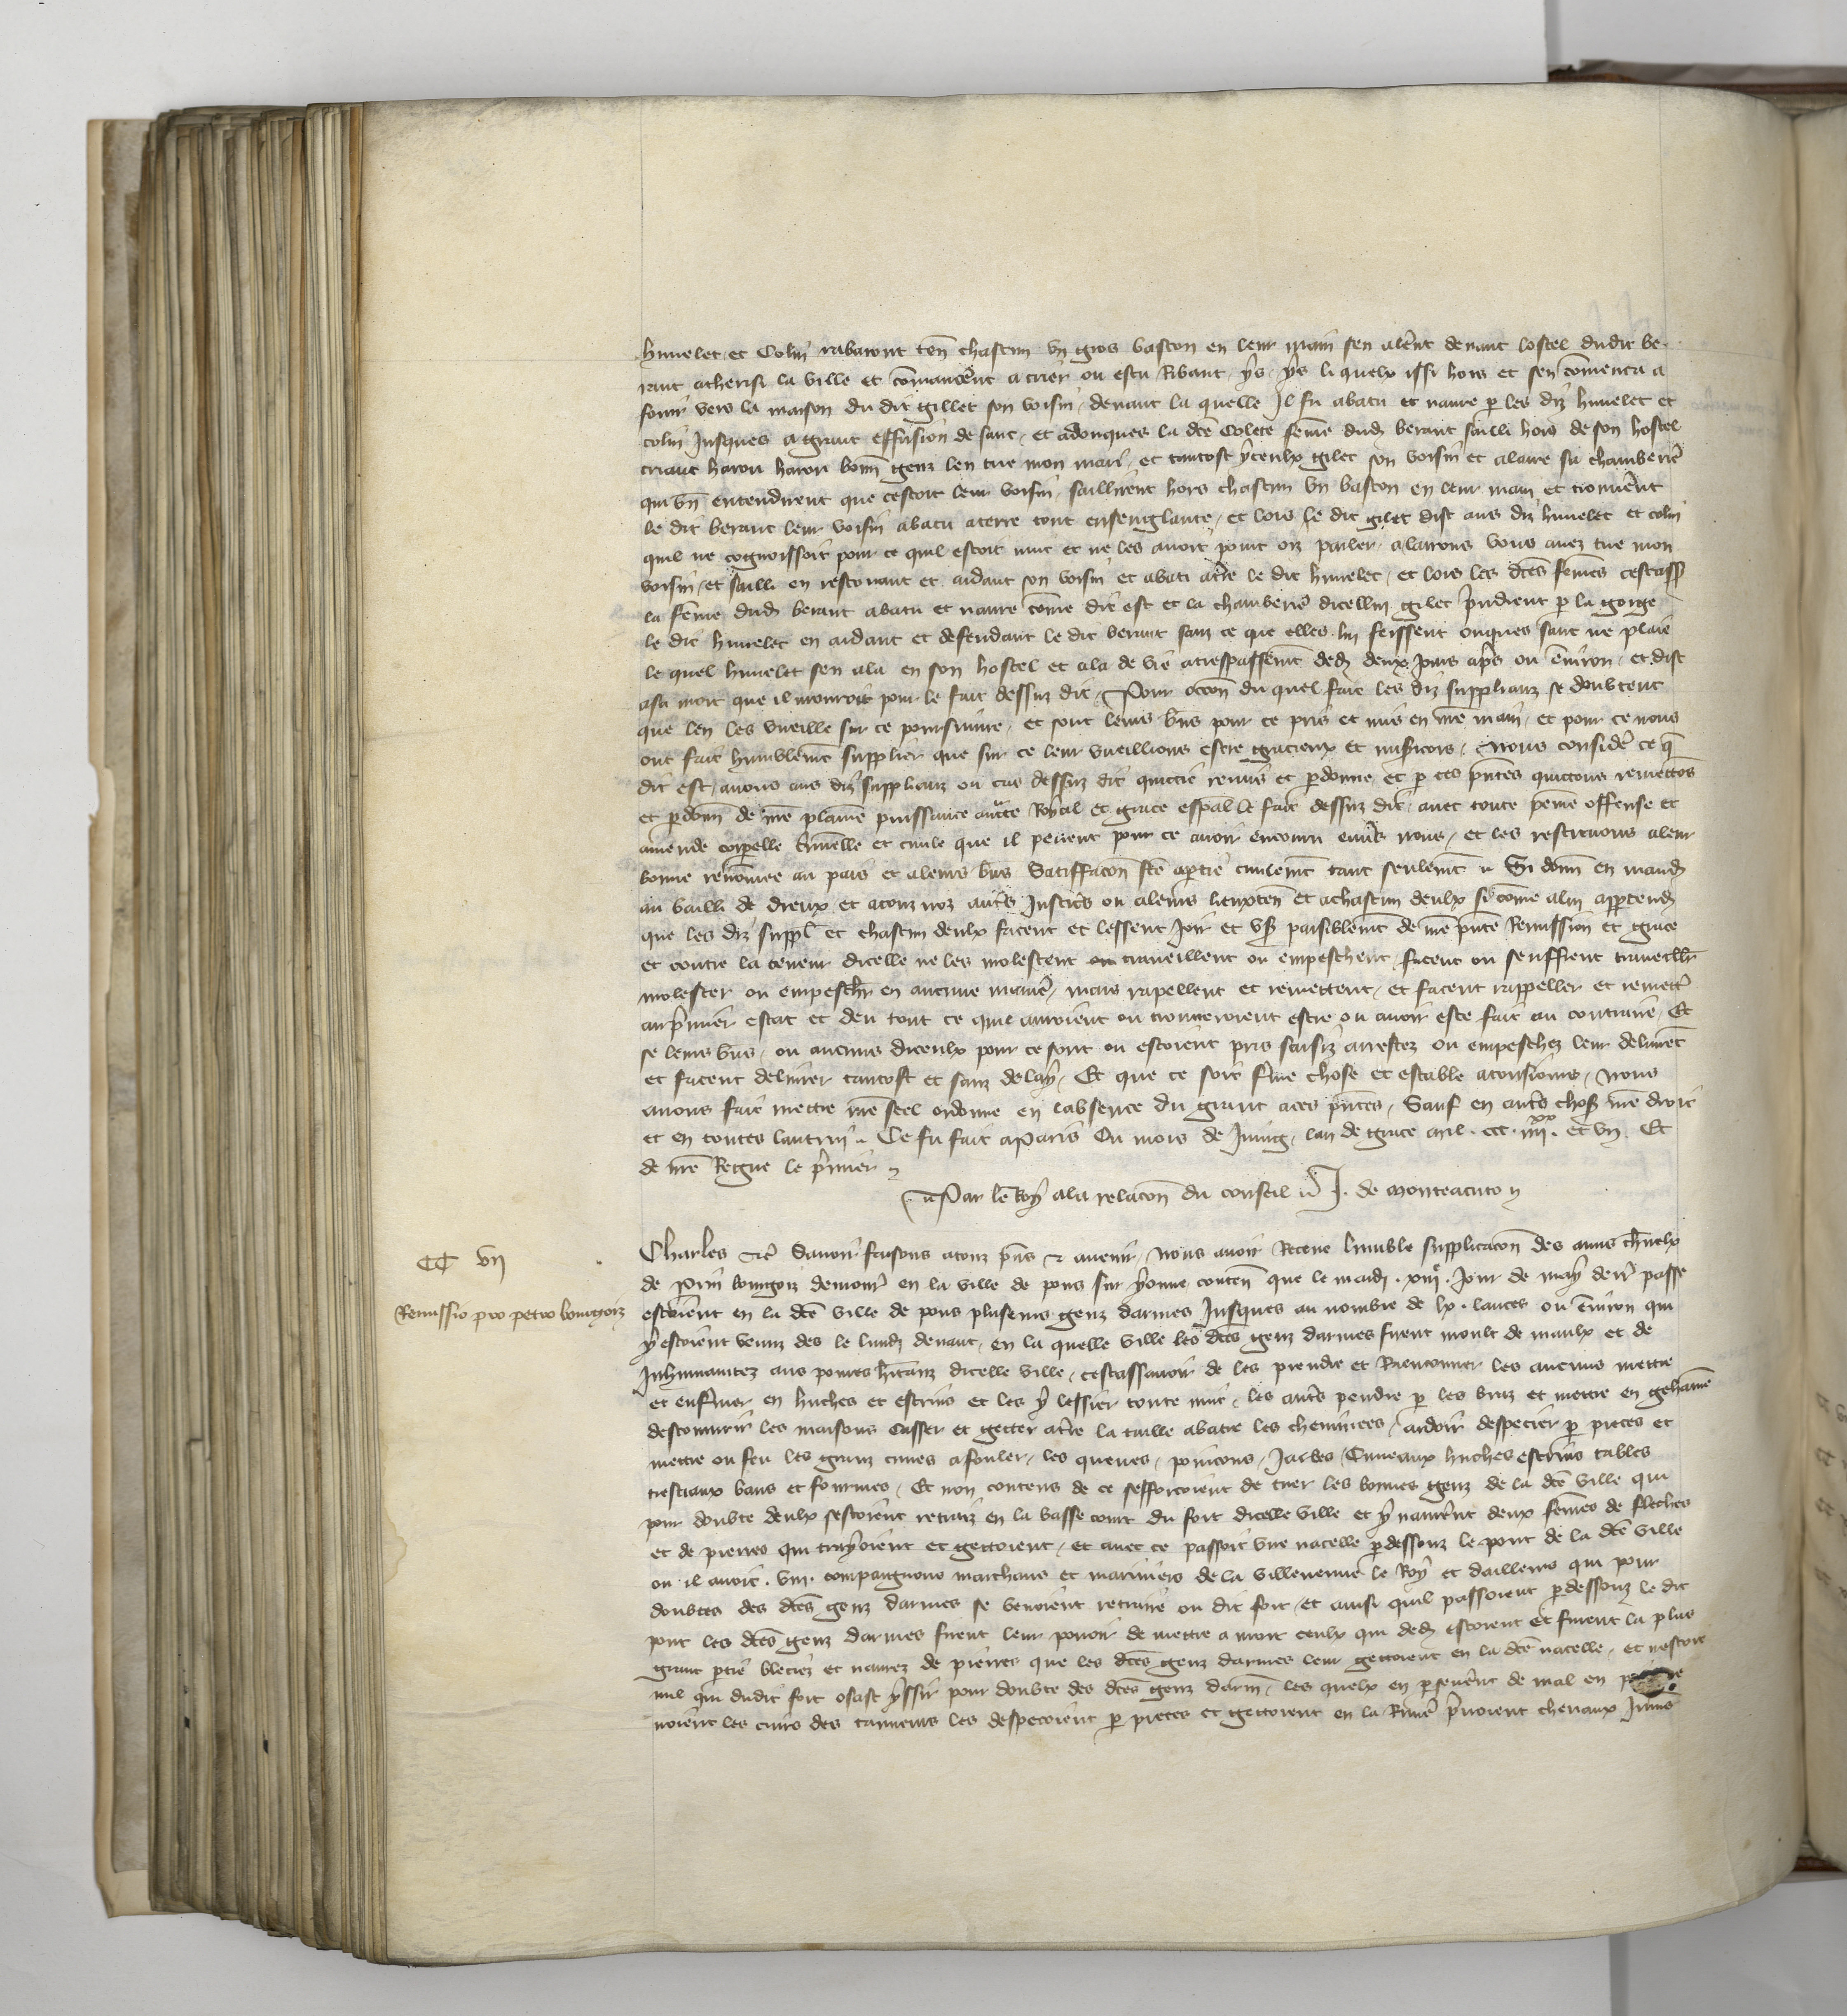 huuelet et Colin rabaront ten chascun un gros baston en leur main sen alerent devant lostel dudit be-
rant atherisi la ville et comancerent a crier ou estu Ribaut ys ys li quelx issi hors et sen comenca a
fouir vers la maison du dit Gillet son voisin devant la quelle Il fu abatu et navre p les diz huuelet et
colin Jusques a grant effusion de sanc et adonques la dce Colete feme dud berant sailli hors de son hostel
criant harou harou bonn genz len tue mon mari et tantost yceulx gilet son voisin et alaire sa chamberiere
qui bn entendirent que cestoit leur voisin saillirent hors chascun un baston en leur main et trouverent
le dit berant leur voisin abatu aterre tout ensenglante et lors le dit gilet dist aus diz huuelet et colin
quil ne cognoissoit pour ce quil estoit nuit et ne les avoit point oiz parler alarrons vous avez tue mon
voisin et sailli en rescouant et aidant son voisin et abati aterre le dit huuelet et lors les dces femes cestass
la feme dud berant abatu et navre come dit est et la chamberiere dicellui gilet prindrent p la gorge
le dit huuelet en aidant et defendant le dit berant sanz ce que elles lui feissent onques sanc ne plaie
le quel huuelet sen ala en son hostel et ala de vie a trespassement dedz deux jours apres ou environ et dist
a sa mort que il mouroit pour le fait dessuz dit Pour occon du quel fait les diz supplianz se doubtent
que len les vueille sur ce poursuivre et sont leurs biens pour ce pris et mis en nre main et pour ce nous
ont fait humblement supplier que sur ce leur vueillions estre gracieux et misericors Nous consider ce q
dit est avons aus diz supplianz ou cas dessuz dit quictie remis et pardonne et p ces pntes quictons remettons
et pdonn de nre plaine puissance auctte Royal et grace espal le fait dessuz dit avec toute peine offense et
amende corporelle criminelle et civile que il peuent pour ce avoir encouru envers nous et les restituons a leur
bonne renomee au pais et a leurs biens Satiffacon fte a partie civilement tant seulement Si donn en mand
au bailli de dreux et a touz noz autres Justiciers ou a leurs lieuxten et a chascun deulx si come a lui apptend
que les diz suppl et chascun deulx facent et lessent joir et user paisiblement de nre pnte Remission et grace
et contre la teneur dicelle ne les molestent ou traveillent ou empeschent facent ou seuffrent traveillr
molester ou empeschr en aucune maniere mais rapellent et remettent et facent rappeller et remettre
au premier estat et deu tout ce quil auroient ou trouveroient estre ou avoir este fait au contraire Et
se leurs biens ou aucuns diceulx pour ce sont ou estoient pris saisiz arrestez ou empeschez leur delivrent
et facent delivrer tantost et sanz delay Et que ce soit ferme chose et estable a tousjours Nous
avons fait mettre nre seel ordonne en labsence du grant a ces pntes Sauf en autres choses nre droit
et en toutes lautrui Ce fu fait a Paris Ou mois de Juing lan de grace mil ccc iiii xx et un Et
de nre Regne le premier
Par le Roy a la relacon du conseil J. de Monteacuto

CC VII
Remissio pro petro bourgoiz
Charles etc Savoir faisons a touz pns et avenir Nous avoir Receue lumble supplicacon des amis charnelx
de Prin bourgoiz demour en la ville de pons sur yonne conten que le mardi xiiii e jour de may derr passe
estoient en la dce ville de pons pluseurs genz darmes Jusques au nombre de lx lances ou environ qui
y estoient venuz des le lundi devant en la quelle ville les dces genz darmes firent moult de maulx et de
Inhumanitez aus povres hitanz dicelle ville cestassavoir de les prendre et Raenconner les aucuns mettre
et enfermer en huches et escrins et les y lessier toute nuit les autres pendre p les braz et mettre en gehaine
descouvrir les maisons casser et getter aterre la tuille abatre les cheminees ardoir despecier p pieces et
mettre ou feu les granz cuves a fouler les queues poincons jarles Cuveaux huches escrins tables
tresteaux bans et fourmes Et non contens de ce sefforcoient de tuer les bonnes genz de la dce ville qui
pour doubte deulx sestoient retraiz en la basse court du fort dicelle ville et y navrerent deux femes de fleches
et de pierres qui trayoient et gettoient et avec ce passoit une nacelle p dessouz le pont de la dce ville
ou il avoit viii compaignons marchans et mariniers de la villeneuve le Roy et dailleurs qui pour
doubtes des dces genz darmes se venoient retraire ou dit fort et ainsi quil passoient p dessouz le dit
pont les dces genz darmes firent leur povoir de mettre a mort ceulx qui dedz estoient et furent la plus
grant ptie bleciez et navrez de pierres que les dces genz darmes leur gettoient en la dce nacelle et nestoit
nul qui dudit fort osast yssir pour doubte des dces genz darm les quelx en pseverent de mal en
noient les cuirs des tanneurs les despecoient p pieces et gettoient en la Riviere prenoient chevaux Jumens